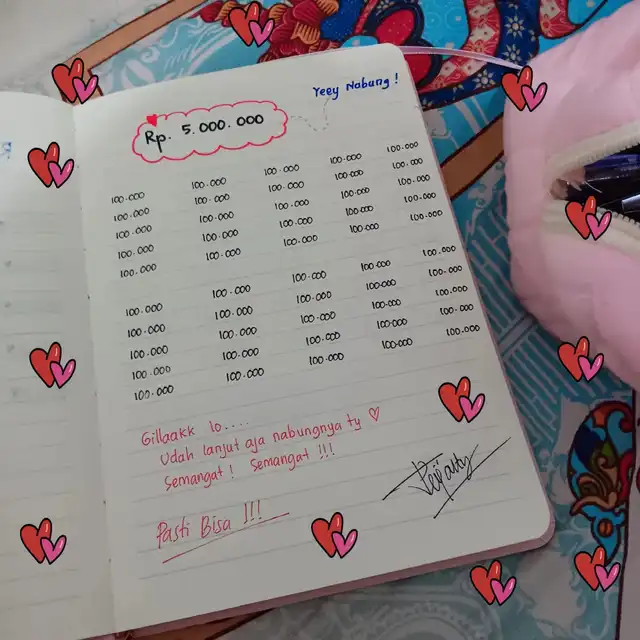 Yeey Nabung !
Rp. 5.000.000
100.000 100.000 100.000 100.000 100.000
100.000 100.000 100.000 100.000 100.000
100.000 100.000 100.000 100.000 100.000
100.000 100.000 100.000 100.000 100.000
100.000 100.000 100.000 100.000 100.000
100.000 100.000 100.000 100.000 100.000
100.000 100.000 100.000 100.000 100.000
100.000 100.000 100.000 100.000 100.000
100.000 100.000 100.000 100.000 100.000
100.000 100.000 100.000 100.000 100.000
Gillaakk lo....
Udah lanjut aja nabungnya ty ♡
Semangat ! Semangat !!!
Pasti Bisa !!!